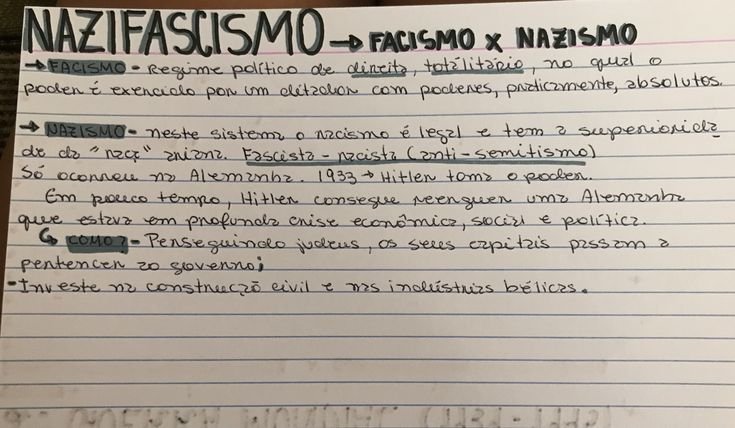 NAZIFASCISMO → FACISMO X NAZISMO
→ FACISMO - Regime político de direita, totalitário, no qual o
poder é exercido por um ditador com poderes, praticamente, absolutos.
→ NAZISMO - neste sistema o racismo é legal e tem a superiorida
de da "raça" ariana. Fascista - racista (anti-semitismo)
Só ocorreu na Alemanha. 1933 → Hitler toma o poder.
Em pouco tempo, Hitler consegue reerguer uma Alemanha
que estava em profunda crise econômica, social e política.
↳ COMO? - Perseguindo judeus, os seus capitais passam a
pertencer ao governo;
• Investe na construção civil e nas indústrias bélicas.